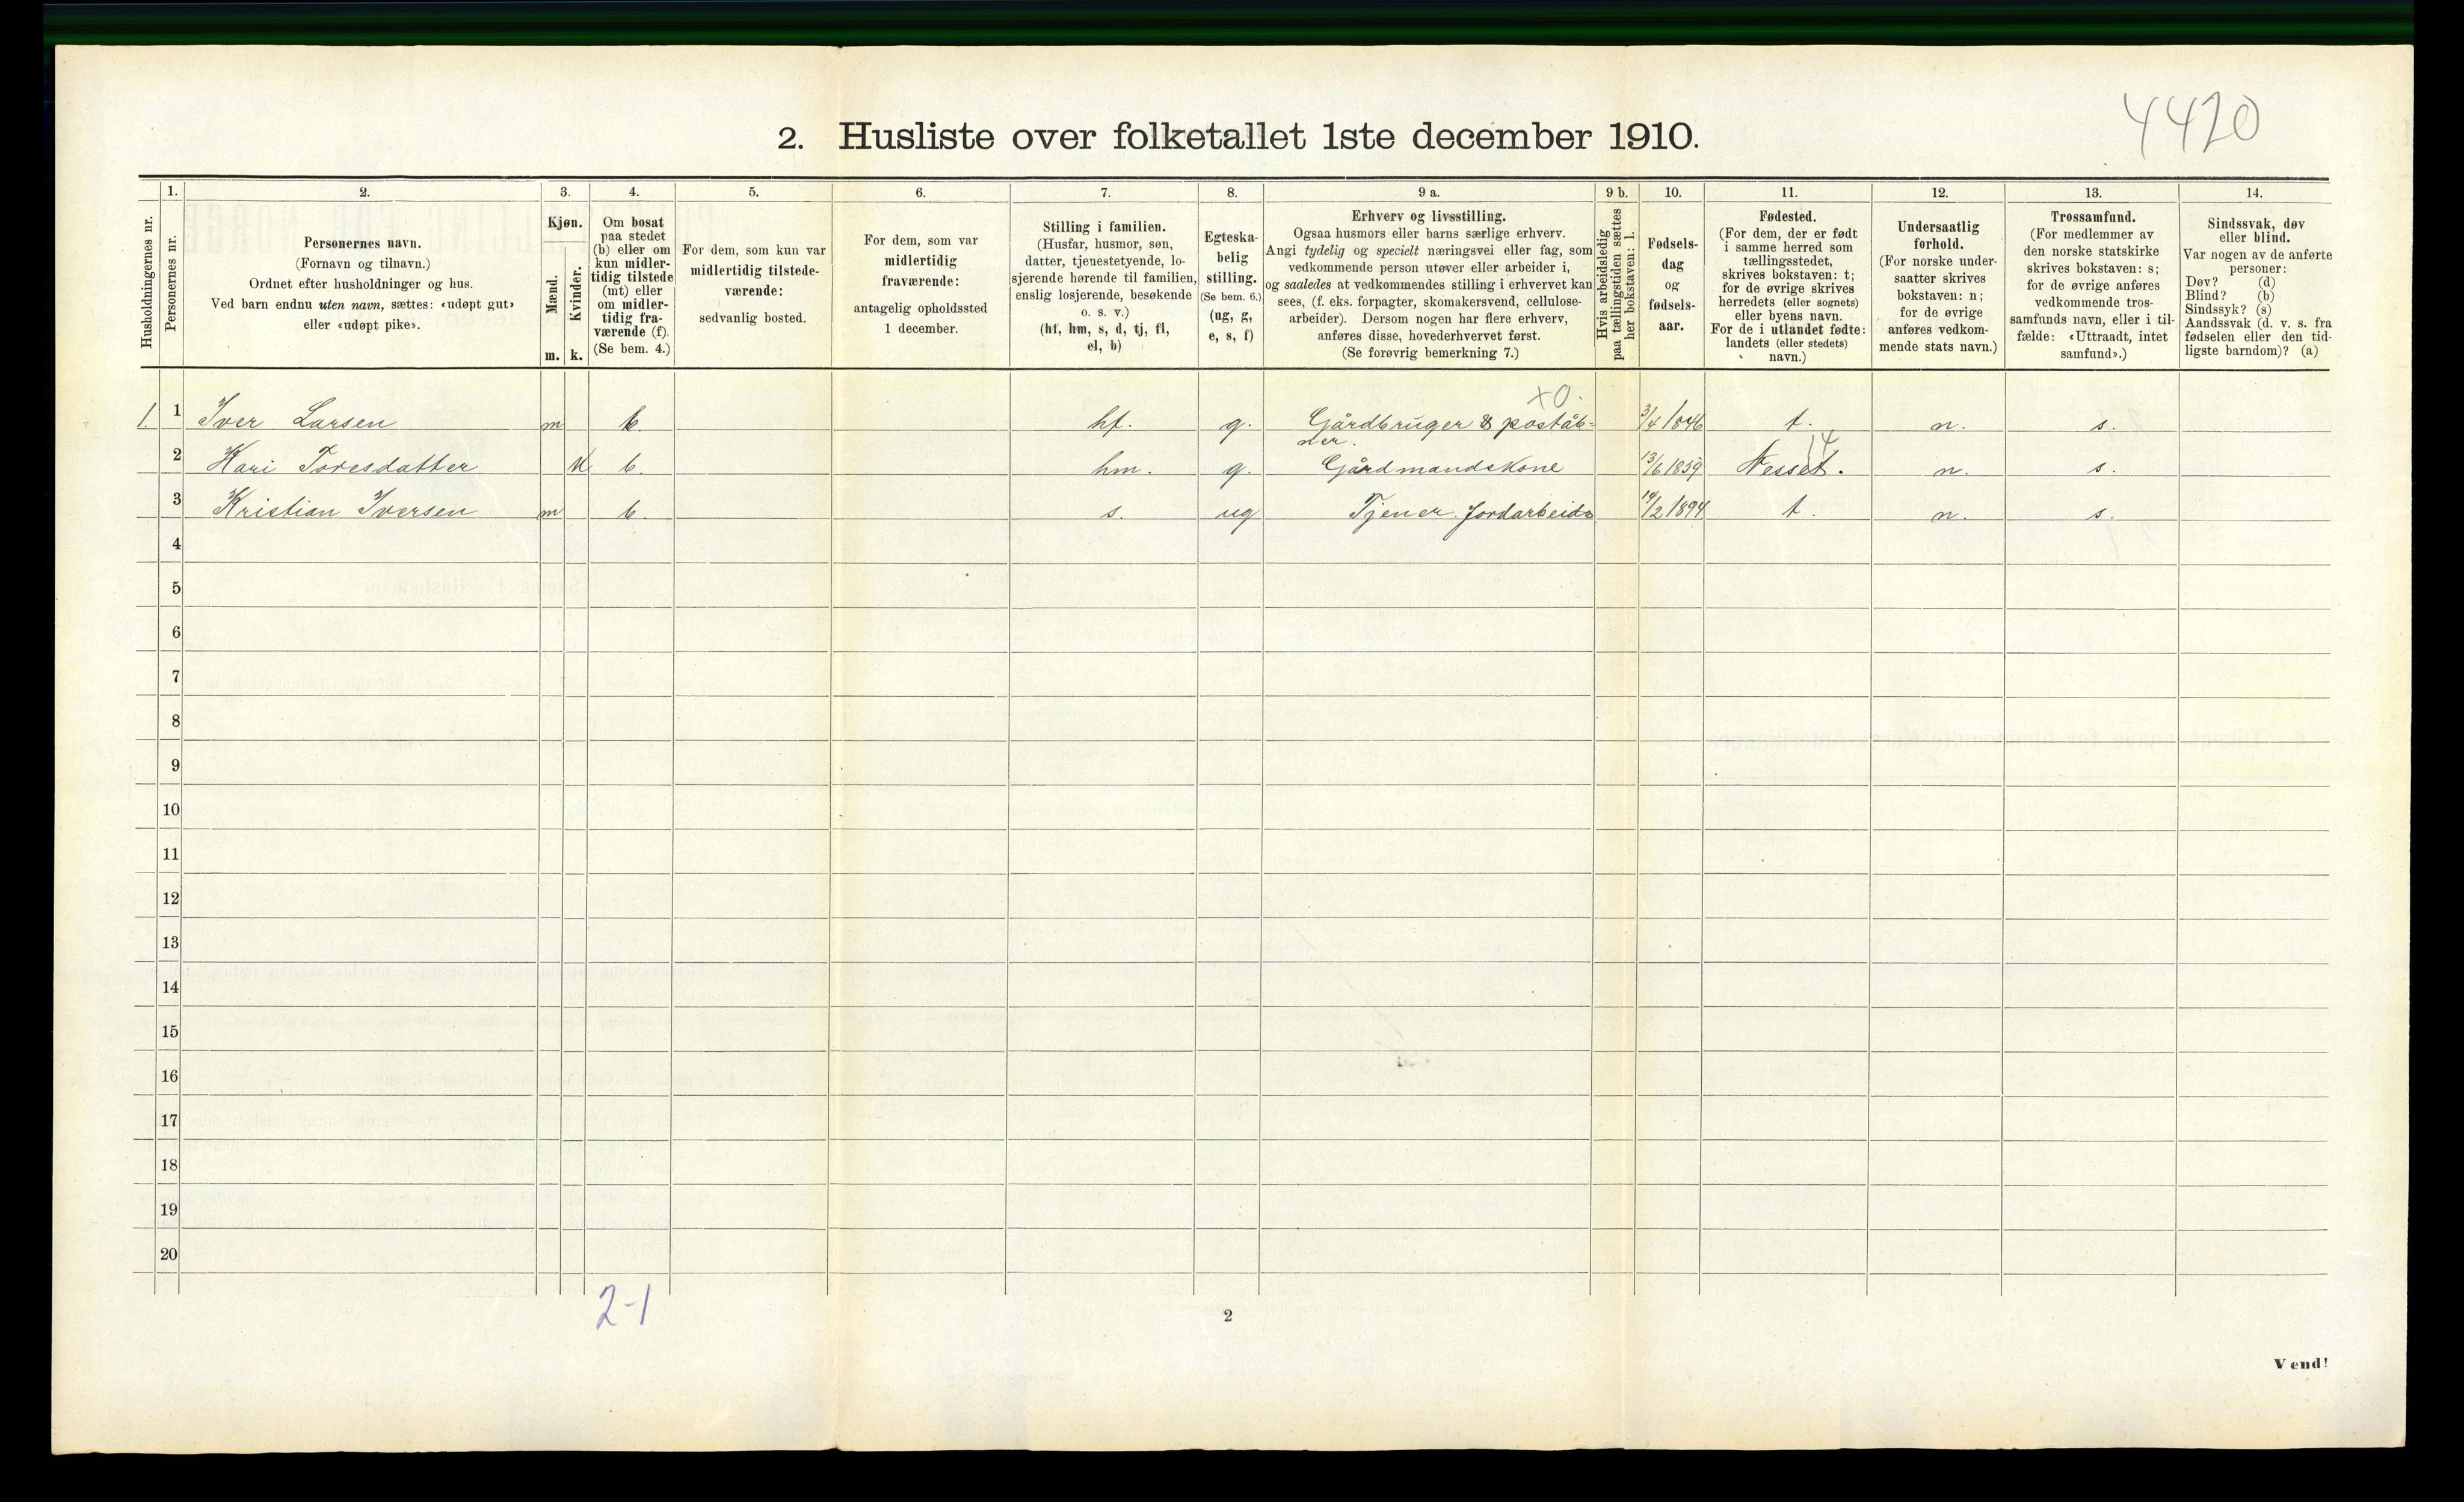 4420
2. Husliste over folketallet 1ste december 1910.
Husholdningernes nr.
1.
Personernes nr.
2.
Personernes navn.
(Fornavn og tilnavn.)
Ordnet efter husholdninger og hus.
Ved barn endnu uten navn, sættes: «udøpt gut»
eller «udøpt pike».
3.
Kjøn.
Mænd.
m.
Kvinder.
k.
4.
Om bosat
paa stedet
(b) eller om
kun midler-
tidig tilstede
(mt) eller
om midler-
tidig fra-
værende (f).
(Se bem. 4.)
5.
For dem, som kun var
midlertidig tilstede-
værende:
sedvanlig bosted.
6.
For dem, som var
midlertidig
fraværende:
antagelig opholdssted
1 december.
7.
Stilling i familien.
(Husfar, husmor, søn,
datter, tjenestetyende, lo-
sjerende hørende til familien,
enslig losjerende, besøkende
o. s. v.)
(hf, hm, s, d, tj, fl,
el, b)
8.
Egteska-
belig
stilling.
(Se bem. 6.)
(ug, g,
e, s, f)
9 a.
Erhverv og livsstilling.
Ogsaa husmors eller barns særlige erhverv.
Angi tydelig og specielt næringsvei eller fag, som
vedkommende person utøver eller arbeider i,
og saaledes at vedkommendes stilling i erhvervet kan
sees, (f. eks. forpagter, skomakersvend, cellulose-
arbeider). Dersom nogen har flere erhverv,
anføres disse, hovederhvervet først.
(Se forøvrig bemerkning 7.)
9 b.
Hvis arbeidsledig
paa tællingstiden sættes
her bokstaven: l.
10.
Fødsels-
dag
og
fødsels-
aar.
11.
Fødested.
(For dem, der er født
i samme herred som
tællingsstedet,
skrives bokstaven: t;
for de øvrige skrives
herredets (eller sognets)
eller byens navn.
For de i utlandet fødte:
landets (eller stedets)
navn.)
12.
Undersaatlig
forhold.
(For norske under-
saatter skrives
bokstaven: n;
for de øvrige
anføres vedkom-
mende stats navn.)
13.
Trossamfund.
(For medlemmer av
den norske statskirke
skrives bokstaven: s;
for de øvrige anføres
vedkommende tros-
samfunds navn, eller i til-
fælde: «Uttraadt, intet
samfund».)
14.
Sindssvak, døv
eller blind.
Var nogen av de anførte
personer:
Døv? (d)
Blind? (b)
Sindssyk? (s)
Aandssvak (d. v. s. fra
fødselen eller den tid-
ligste barndom)? (a)
x0.
1. 1 Iver Larsen m b. hf. g. Gårdbruger & poståb- 3/4 1846 t. n. s.
ner.
14
2 Kari Toresdatter k b. hm. g. Gårdmandskone 13/6 1859 Nesset. n. s.
3 Kristian Iversen m b. s. ug Tjener Jordarbeide 14/2 1894 t. n. s.
4
5
6
7
8
9
10
11
12
13
14
15
16
17
18
19
20
2-1
2
Vend!